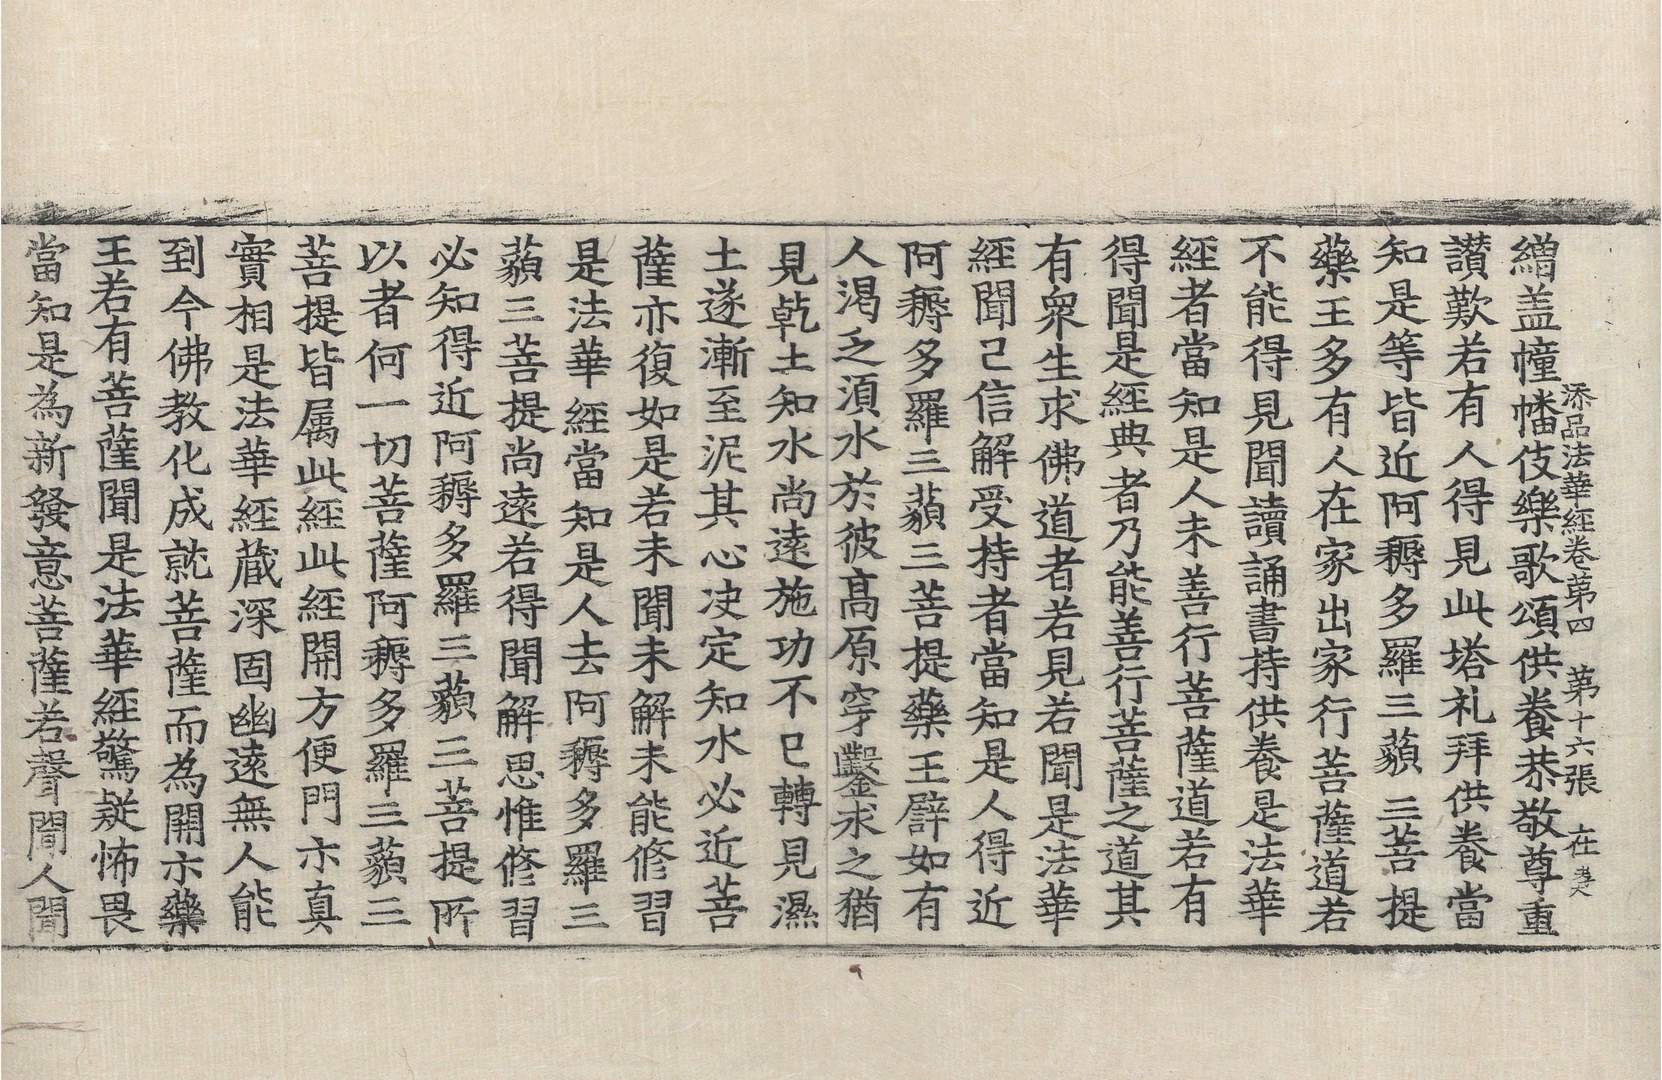 添品法華經卷第四　第十六張　在
繒盖幢幡伎樂歌頌供養恭敬尊重
讃歎若有人得見此塔礼拜供養當
知是等皆近阿耨多羅三藐三菩提
藥王多有人在家出家行菩薩道若
不能得見聞讀誦書持供養是法華
經者當知是人未善行菩薩道若有
得聞是經典者乃能善行菩薩之道其
有衆生求佛道者若見若聞是法華
經聞已信解受持者當知是人得近
阿耨多羅三藐三菩提藥王譬如有
人渴乏湏水於彼高原穿鑿求之猶
見乾土知水尚遠施功不已轉見濕
土遂漸至泥其心决定知水必近菩
薩亦復如是若未聞未解未能修習
是法華經當知是人去阿耨多羅三
藐三菩提尚遠若得聞解思惟修習
必知得近阿耨多羅三藐三菩提所
以者何一切菩薩阿耨多羅三藐三
菩提皆属此經此經開方便門示真
實相是法華經蔵深固幽遠無人能
到今佛教化成就菩薩而為開示藥
王若有菩薩聞是法華經驚疑怖畏
當知是為新發意菩薩若聲聞人聞